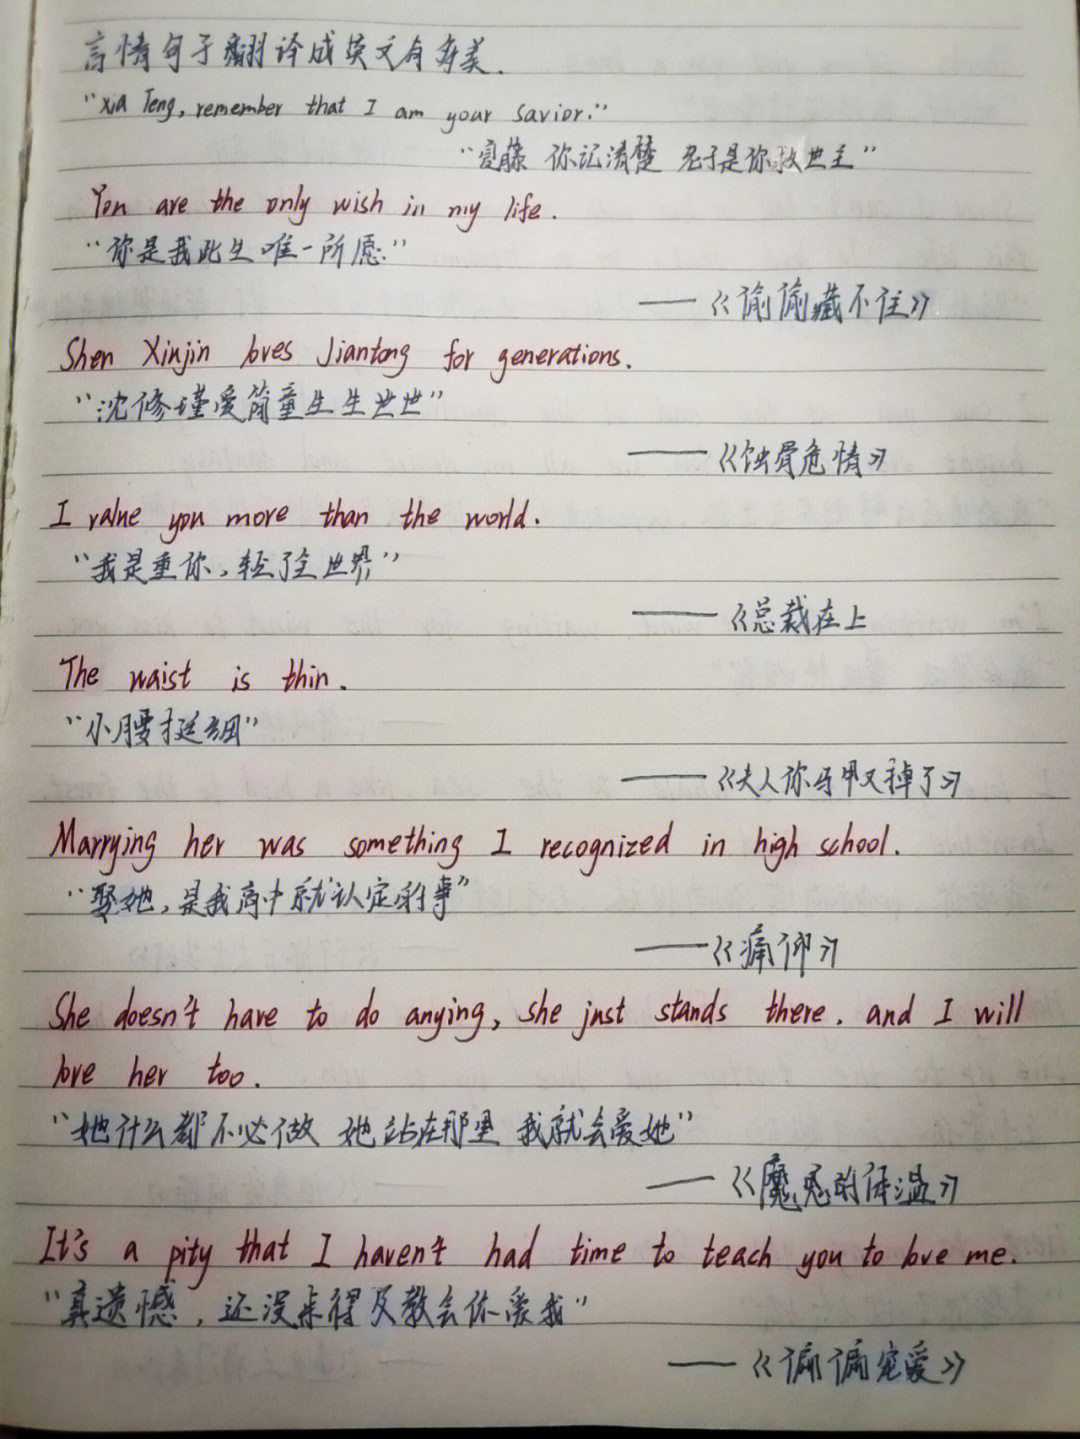 言情句子翻译成英文有多美.
"Xia Teng, remember that I am your savior."
"夏藤 你记清楚 老子是你救世主"
You are the only wish in my life.
"你是我此生唯一所愿."
——《偷偷藏不住》
Shen Xiujin loves Jiantong for generations.
"沈修瑾爱简童生生世世"
——《蚀骨危情》
I value you more than the world.
"我是重你,轻了全世界"
——《总裁在上
The waist is thin.
"小腰挺细"
——《夫人你马甲又掉了》
Marrying her was something I recognized in high school.
"娶她,是我高中就认定的事"
——《痛仰》
She doesn't have to do anying, she just stands there. and I will
love her too.
"她什么都不必做 她站在那里 我就会爱她"
——《魔鬼的体温》
It's a pity that I haven't had time to teach you to love me.
"真遗憾,还没来得及教会你爱我"
——《偏偏宠爱》